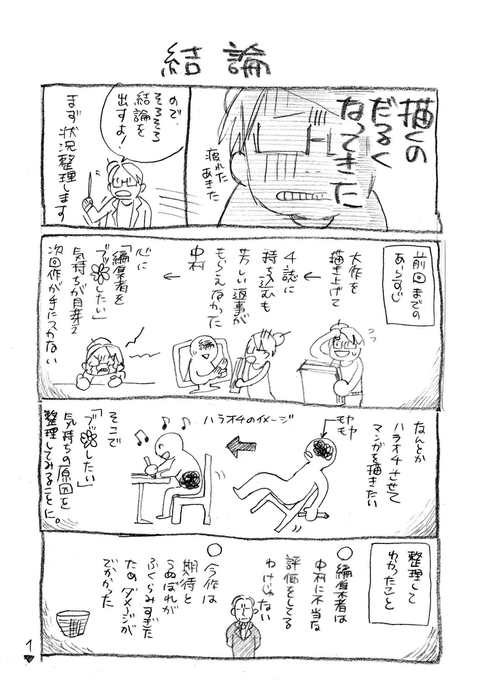 結論
描くの
だるく
なってきた
疲れた
あきた
ので、
そろそろ
結論を
出すよ！
まず状況整理します
前回までの
あらすじ
大作を
描き上げて
↓
4誌に
持ち込むも
芳しい返事が
もらえなかった
中村
↓
心に
「編集者を
ブッ したい」
気持ちが目芽え
次回作が手につかない
編
なんとか
ハラオチさせて
マンガを描きたい
モヤ
モヤ
ハラオチのイメージ
そこで
「ブッ したい」
気持ちの原因を
整理してみることに。
整理して
わかったこと
○編集者は
中村に不当な
評価をしてる
わけじゃない
○今作は
期待と
うぬぼれが
ふくらみすぎた
ためダメージが
でかかった
1